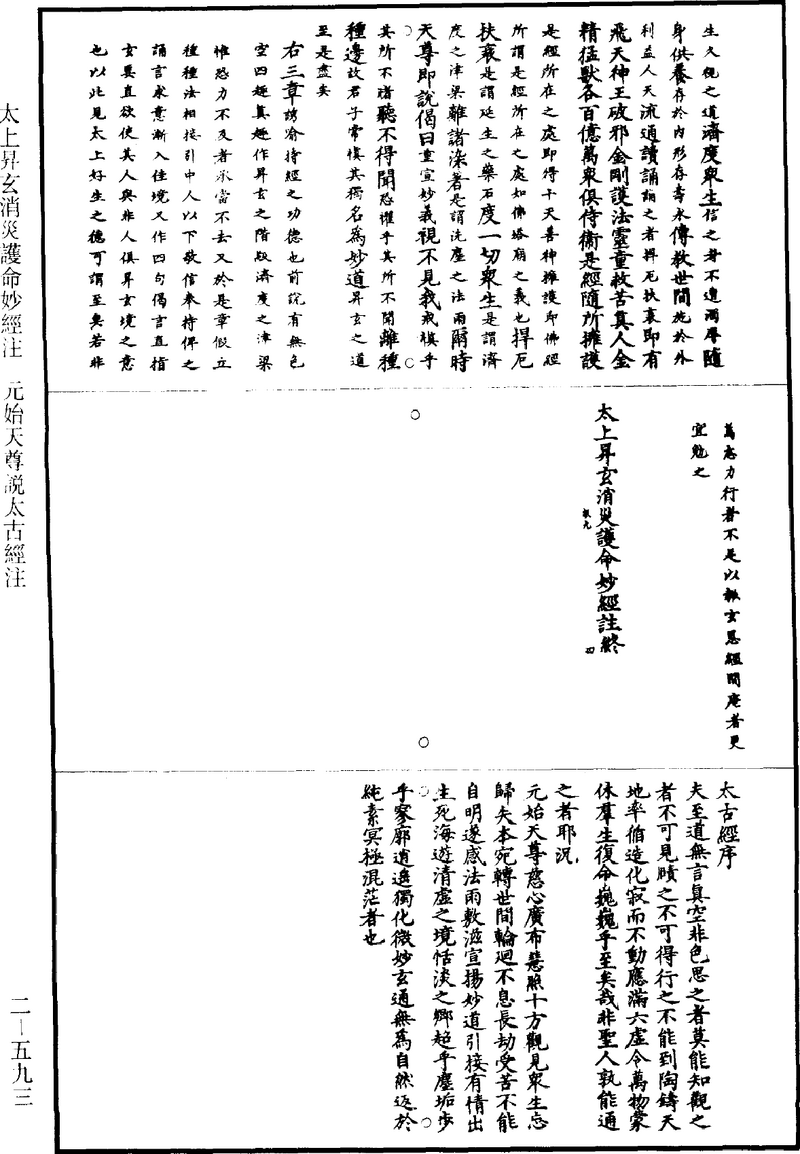 生久視之道濟度衆生信之者不違濁辱隨
身供養存於內形存壽永傳教世間施於外
利益人天流通讀誦誦之者捍厄扶衰即有
飛天神王破邪金剛護法靈童救苦真人金
精猛獸各百億萬衆俱侍衛是經隨所擁護
是經所在之處即得十天善神擁護即佛經
所謂是經所在之處如佛塔廟之義也捍厄
扶衰是謂延生之藥石度一切衆生是謂濟
度之津梁離諸染著是謂洗塵之法雨爾時
天尊即說偈曰重宣妙義視不見我戒愼乎
其所不睹聽不得聞恐懼乎其所不聞離種
種邊故君子常愼其獨名爲妙道昇玄之道
至是盡矣
右三章諭持經之功德也前說有無色
空四趣真趣作昇玄之階級濟度之津梁
惟恐力不及者承當不去又於是章假立
種種法相接引中人以下敬信奉持俾之
誦言求意漸入佳境又作四句偈言直指
玄要直欲使其人與非人俱昇玄境之意
也以此見太上好生之德可謂至矣若非
篤志力行者不足以報玄恩經閱庵者更
宜勉之
太上昇玄消災護命妙經註終
太古經序
夫至道無言真空非色思之者莫能知觀之
者不可見賾之不可得行之不能到陶鑄天
地率循造化寂而不動應滿六虛令萬物蒙
休羣生復命巍巍乎至矣哉非聖人孰能通
之者耶況
元始天尊慈心廣布慧照十方觀見衆生忘
歸失本宛轉世間輪迴不息長劫受苦不能
自明遂感法雨敷滋宣揚妙道引接有情出
生死海遊清虛之境恬淡之鄉超乎塵垢步
乎寥廓逍遥獨化微妙玄通無爲自然返於
純素冥極混茫者也
太上昇玄消災護命妙經注　元始天尊說太古經注
二—五九三